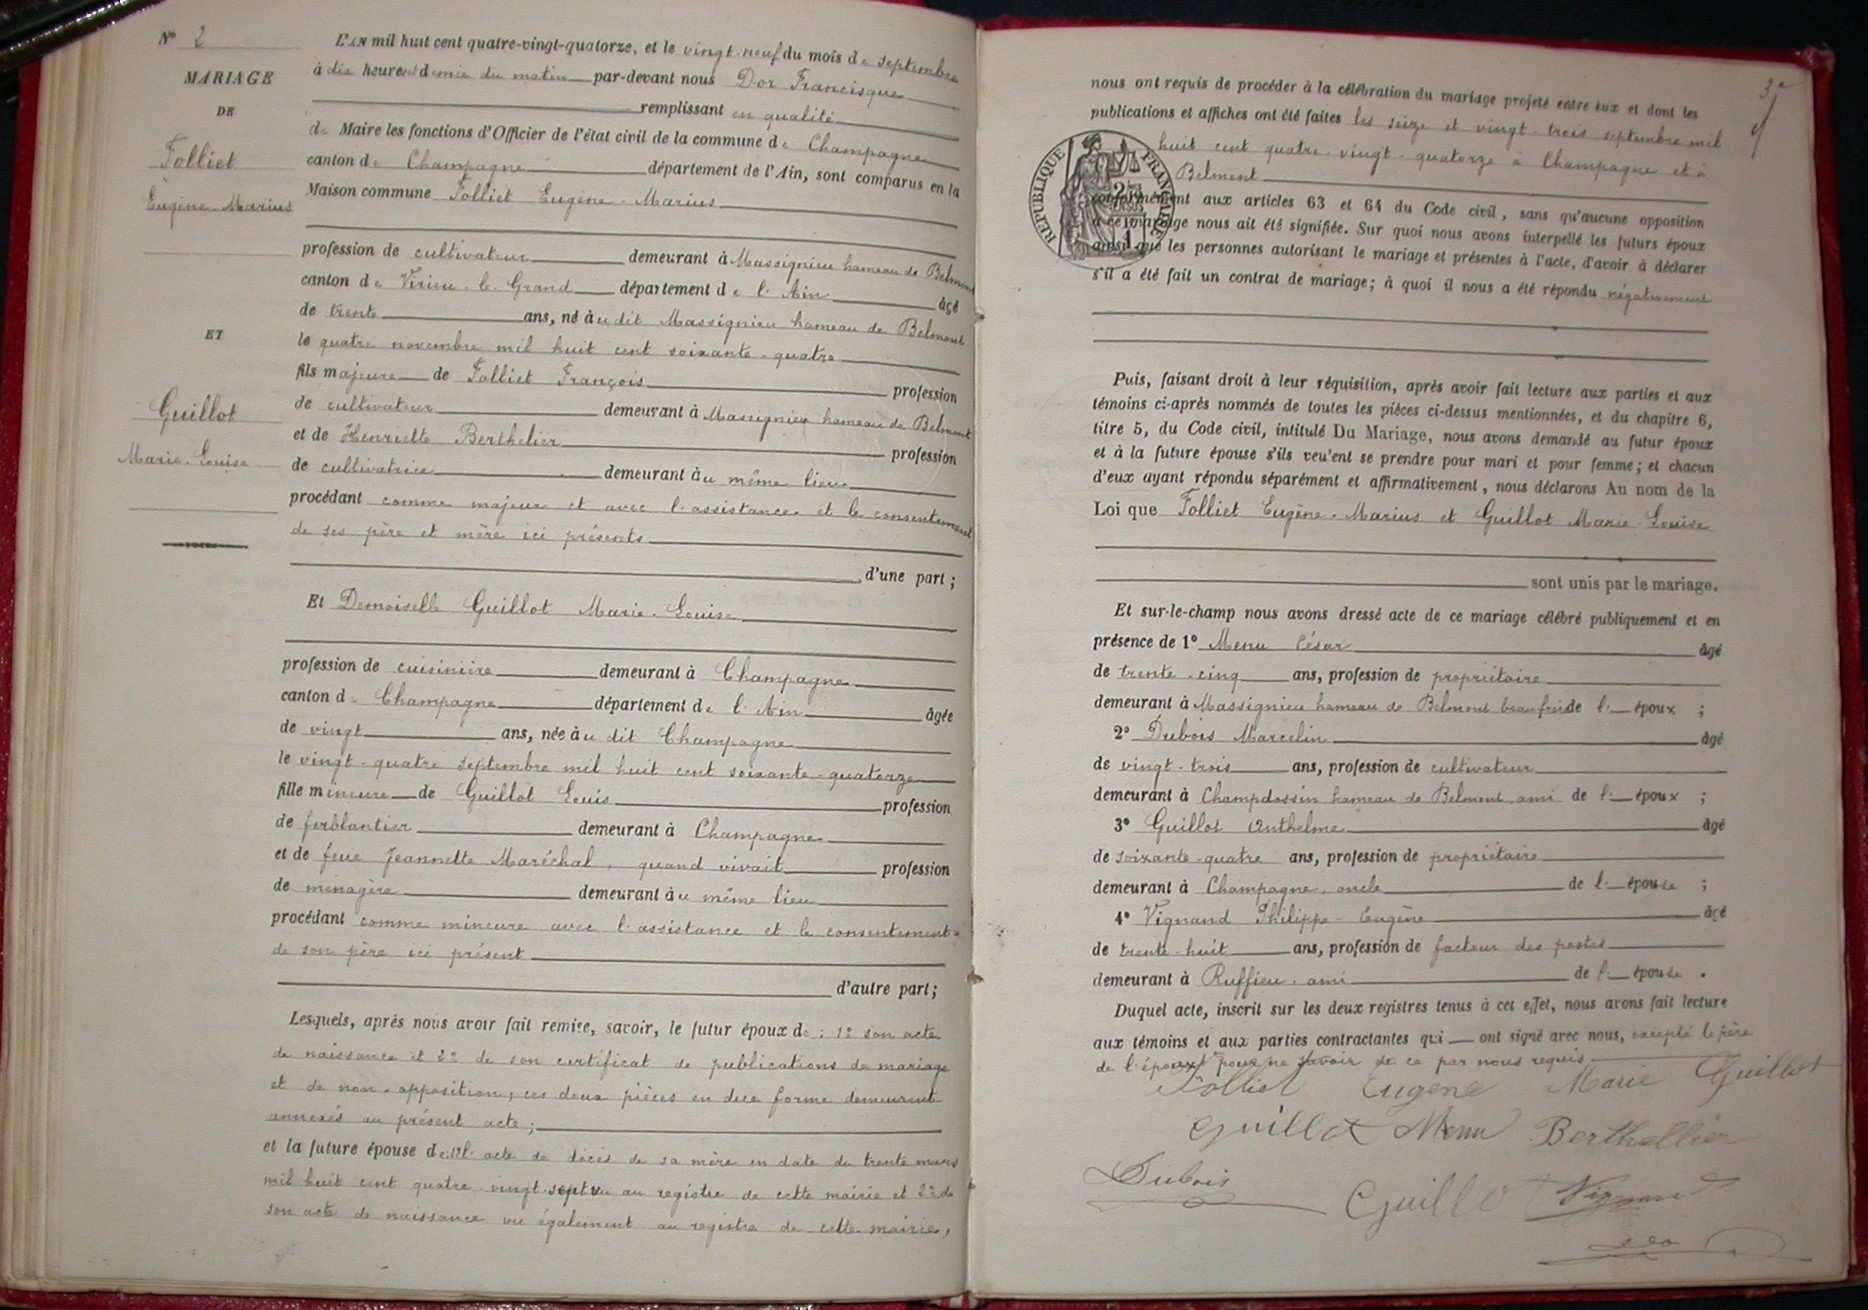 N° 2
MARIAGE
DE
Folliet
Eugène-Marius
ET
Guillot
Marie-Louise
L'AN mil huit cent quatre-vingt-quatorze, et le vingt-neuf du mois de septembre
à dix heures et demie du matin par-devant nous Dor Francisque
remplissant en qualité
de Maire les fonctions d'Officier de l'état civil de la commune de Champagne
canton de Champagne département de l'Ain, sont comparus en la
Maison commune Folliet Eugène-Marius
profession de cultivateur demeurant à Massignieu hameau de Belmont
canton de Virieu-le-Grand département de l'Ain âgé
de trente ans, né au dit Massignieu hameau de Belmont
le quatre novembre mil huit cent soixante-quatre
fils majeure de Folliet François profession
de cultivateur demeurant à Massignieu hameau de Belmont
et de Henriette Berthelier profession
de cultivatrice demeurant au même lieu
procédant comme majeur et avec l'assistance et le consentement
de ses père et mère ici présents
d'une part ;
Et Demoiselle Guillot Marie-Louise
profession de cuisinière demeurant à Champagne
canton de Champagne département de l'Ain âgée
de vingt ans, née au dit Champagne
le vingt-quatre septembre mil huit cent soixante-quatorze
fille mineure de Guillot Louis profession
de ferblantier demeurant à Champagne
et de feue Jeannette Maréchal, quand vivait profession
de ménagère demeurant au même lieu
procédant comme mineure avec l'assistance et le consentement
de son père ici présent
d'autre part ;
Lesquels, après nous avoir fait remise, savoir, le futur époux de : 1° son acte
de naissance et 2° de son certificat de publications de mariage
et de non-opposition, ces deux pièces en due forme demeurent
annexés au présent acte ;
et la future épouse de : 1° l'acte de décès de sa mère en date du trente mars
mil huit cent quatre-vingt-sept vu au registre de cette mairie et 2° de
son acte de naissance vu également au registre de cette mairie,
nous ont requis de procéder à la célébration du mariage projeté entre eux et dont les
publications et affiches ont été faites les seize et vingt-trois septembre mil
huit cent quatre-vingt-quatorze à Champagne et à
Belmont
conformément aux articles 63 et 64 du Code civil, sans qu'aucune opposition
à ce mariage nous ait été signifiée. Sur quoi nous avons interpellé les futurs époux
ainsi que les personnes autorisant le mariage et présentes à l'acte, d'avoir à déclarer
s'il a été fait un contrat de mariage ; à quoi il nous a été répondu négativement
RÉPUBLIQUE FRANÇAISE
Puis, faisant droit à leur réquisition, après avoir fait lecture aux parties et aux
témoins ci-après nommés de toutes les pièces ci-dessus mentionnées, et du chapitre 6,
titre 5, du Code civil, intitulé Du Mariage, nous avons demandé au futur époux
et à la future épouse s'ils veulent se prendre pour mari et pour femme ; et chacun
d'eux ayant répondu séparément et affirmativement, nous déclarons Au nom de la
Loi que Folliet Eugène-Marius et Guillot Marie-Louise
sont unis par le mariage.
Et sur-le-champ nous avons dressé acte de ce mariage célébré publiquement et en
présence de 1° Menu César âgé
de trente-cinq ans, profession de propriétaire
demeurant à Massignieu hameau de Belmont beau frère de l' époux ;
2° Dubois Marcelin âgé
de vingt-trois ans, profession de cultivateur
demeurant à Champdossin hameau de Belmont, ami de l' époux ;
3° Guillot Anthelme âgé
de soixante-quatre ans, profession de propriétaire
demeurant à Champagne, oncle de l' épouse ;
4° Vignand Philippe-Eugène âgé
de trente-huit ans, profession de facteur des postes
demeurant à Ruffieu, ami de l' épouse .
Duquel acte, inscrit sur les deux registres tenus à cet effet, nous avons fait lecture
aux témoins et aux parties contractantes qui ont signé avec nous, excepté le père
de l'époux pour ne savoir de ce par nous requis
Folliet Eugène Marie Guillot
Guillot Menu Berthellier
Dubois Guillot Vignand